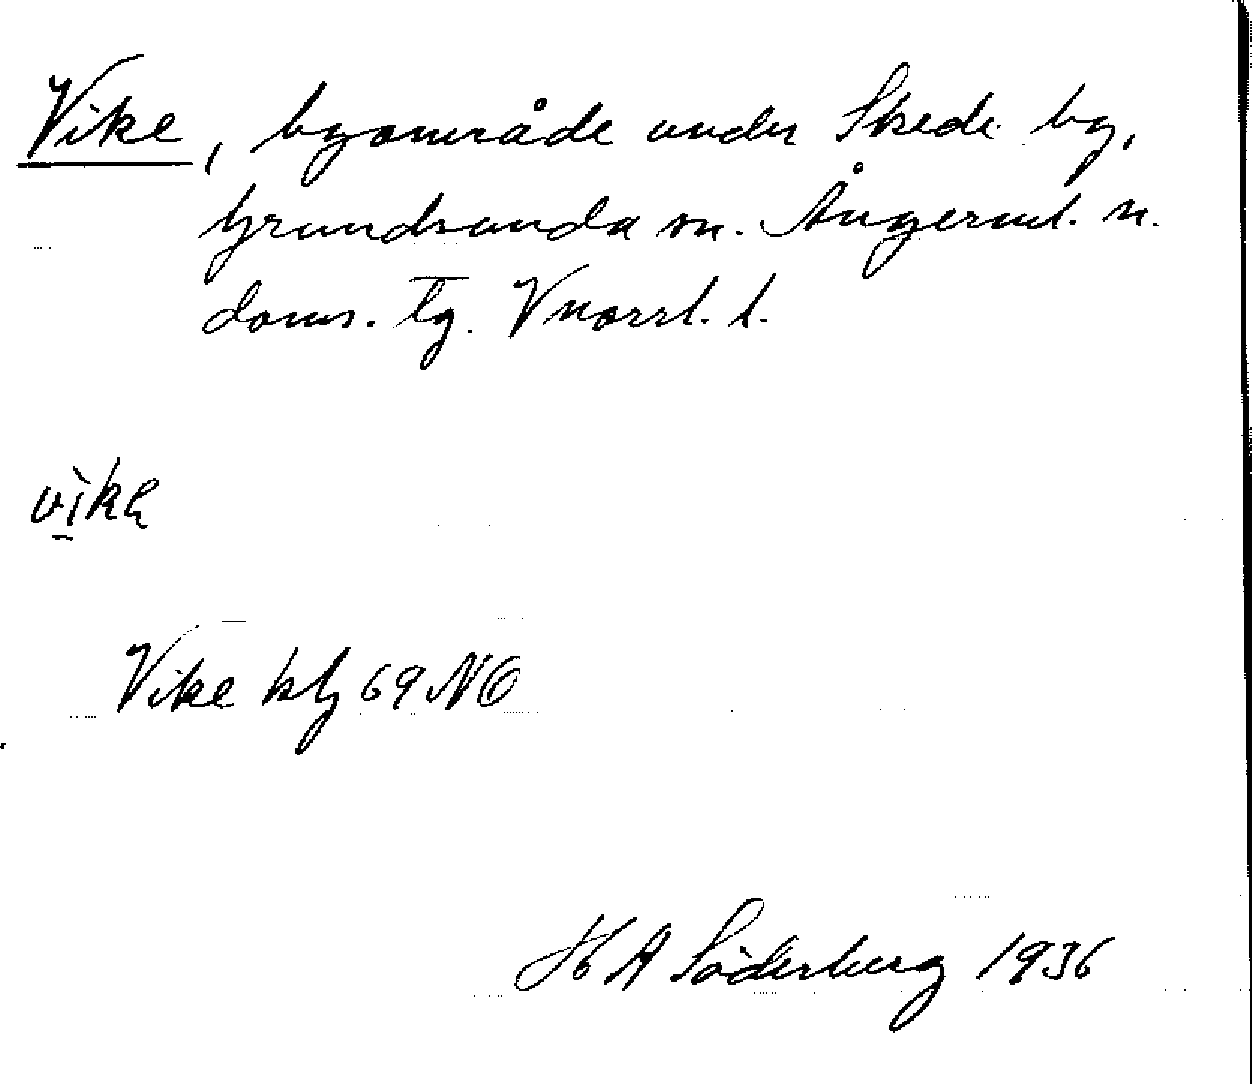 Vike, byområde under Skede by,
Grundsunda sn. Ångerml. n.
doms. tg. Vnorrl. l.
vikę
Vike kbg 69 NO
H A Söderberg 1936